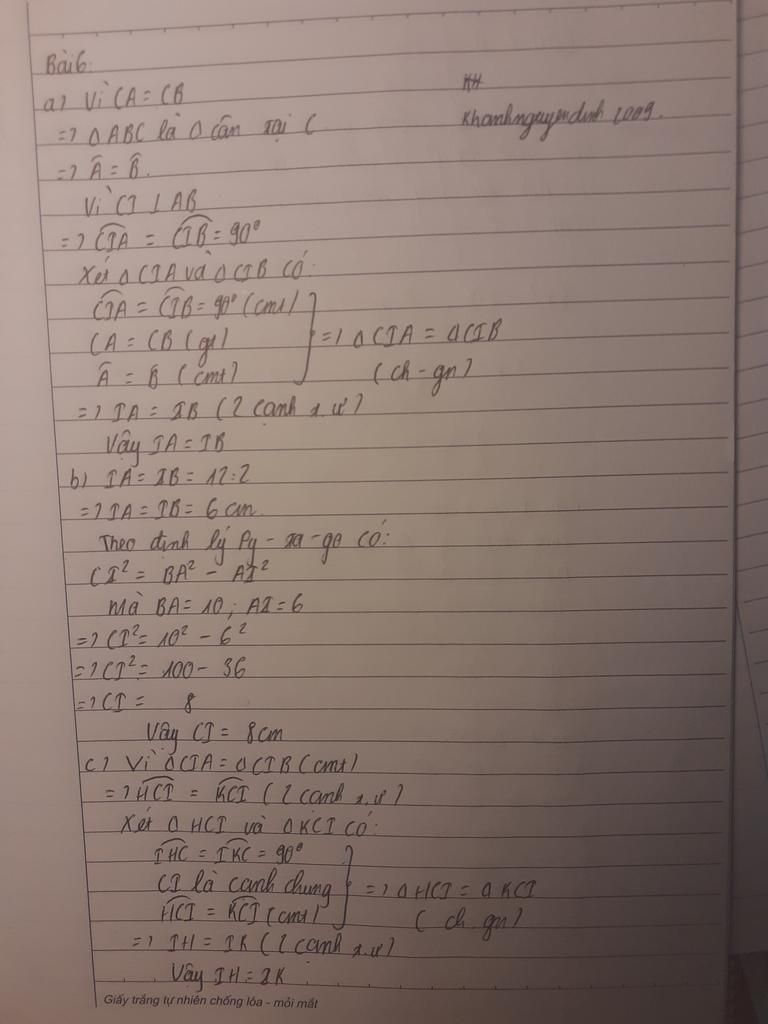 Bài 6:
a) Vì CA = CB
KH
Khanhnguyendinh 2009.
=) Δ ABC là Δ cân tại C
=) Â = B̂.
Vì CI ⊥ AB
=) CIA = CIB = 90°
Xét Δ CIA và Δ CIB có:
CIA = CIB = 90° (cmt)
CA = CB (gt)
=) Δ CIA = Δ CIB
Â = B̂ (cmt)
(ch - gn)
=) IA = IB (2 cạnh t.ư)
Vậy IA = IB
b) IA = IB = 12:2
=) IA = IB = 6 cm
Theo định lý Py - ta - go có:
CI² = BA² - AI²
Mà BA = 10; AI = 6
=) CI² = 10² - 6²
=) CI² = 100 - 36
=) CI = 8
Vậy CI = 8cm
c) Vì Δ CIA = Δ CIB (cmt)
=) HCI = KCI (2 cạnh t.ư)
Xét Δ HCI và Δ KCI có:
IHC = IKC = 90°
CI là cạnh chung
=) Δ HCI = Δ KCI
HCI = KCI (cmt)
(ch gn)
=) IH = IK (2 cạnh t.ư)
Vậy IH = IK
Giấy trắng tự nhiên chống lóa - mỏi mắt